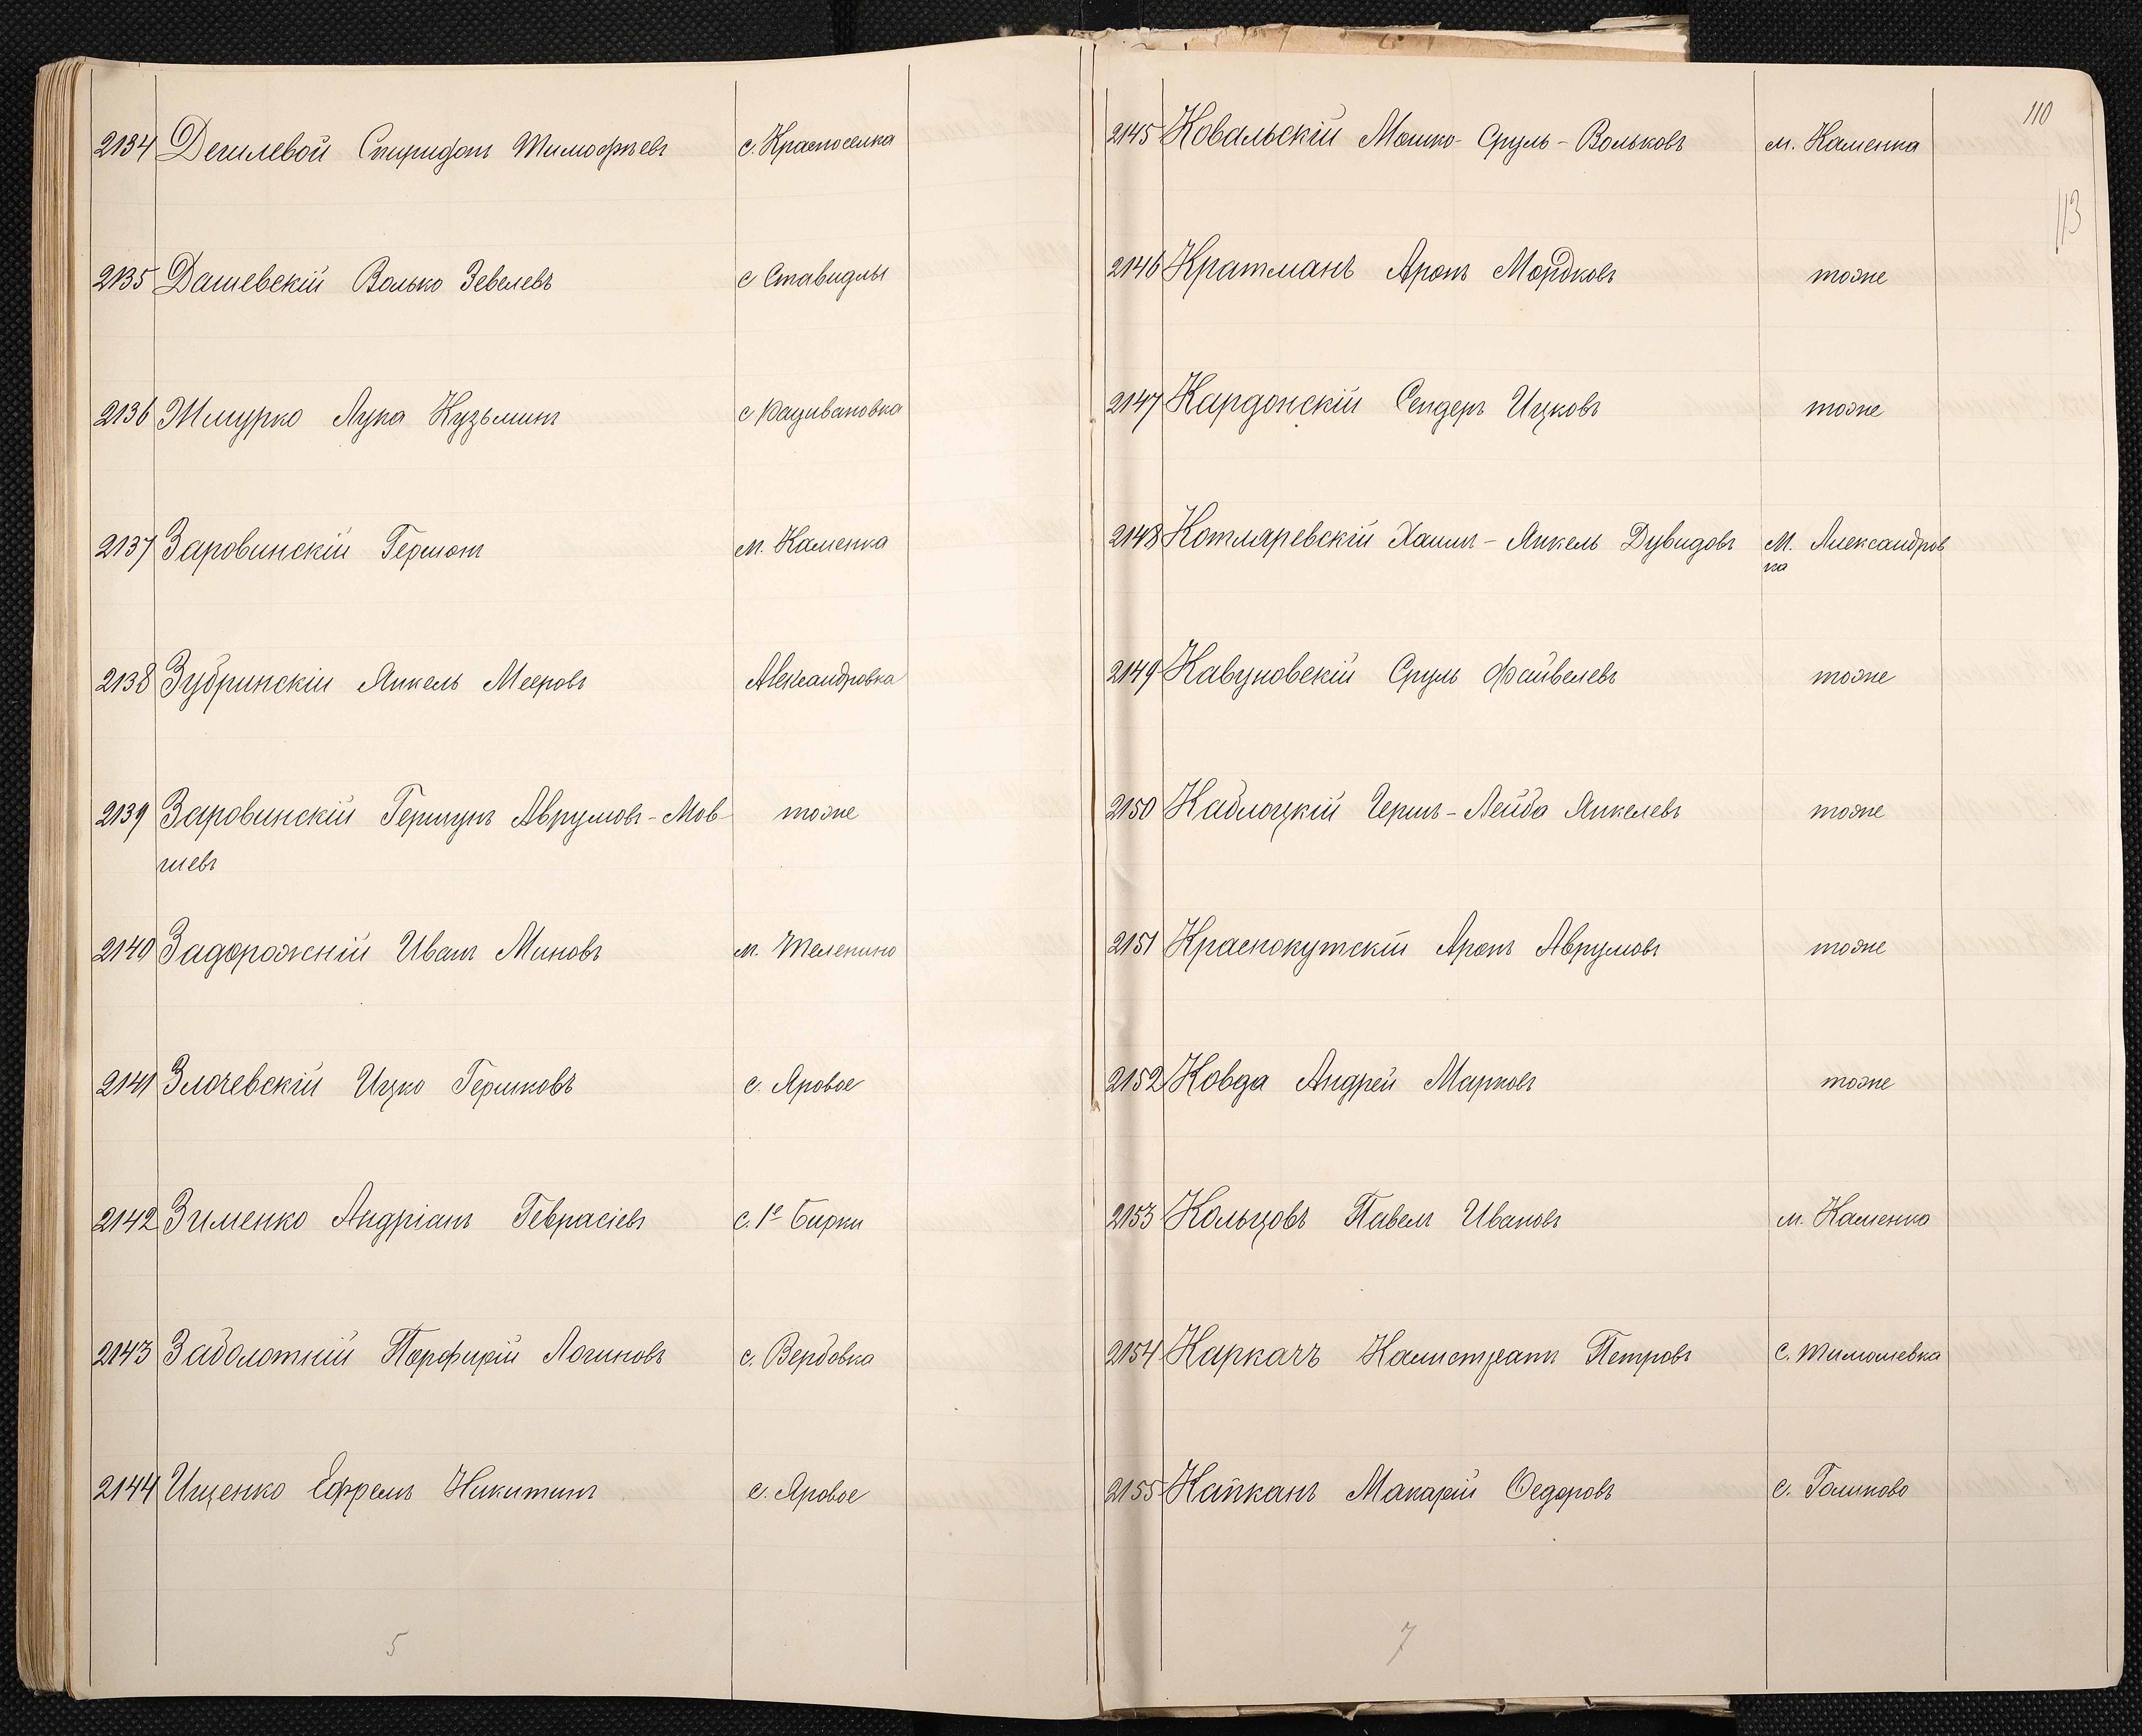 2134 Дешлевой Спиридонъ Тимофѣевъ с. Красноселка
2135 Дашевскій Волько Зевелевъ с Ставидлы
2136 Жмурко Лука Кузьминъ с Радивановка
2137 Заровинскій Гершонъ м. Каменка
2138 Зубринскій Янкель Мееровъ Александровка
2139 Заровинскій Гершунъ Аврумовъ-Мов- тоже
шевъ
2140 Задорожній Иванъ Миновъ м. Телепино
2141 Злочевскій Ицко Гершковъ с. Яровое
2142 Зименко Андріанъ Геврасіевъ с. 1е Бирки
2143 Заболотній Порфирій Логиновъ с. Вербовка
2144 Ищенко Ефремъ Никитинъ с. Яровое
5
110
113
2145 Ковальскій Мошко-Сруль-Вольковъ м. Каменка
2146 Кратманъ Аронъ Мордковъ тоже
2147 Кардонскій Сендеръ Ицковъ тоже
2148 Котляревскій Хаимъ-Янкель Дувидовъ м. Александров
ка
2149 Кавуновскій Сруль Файвелевъ тоже
2150 Каблоцкій Гершъ-Лейба Янкелевъ тоже
2151 Краснокутскій Аронъ Аврумовъ тоже
2152 Ковда Андрей Марковъ тоже
2153 Кольцовъ Павелъ Ивановъ м. Каменка
2154 Каркачъ Калистратъ Петровъ с. Тимошевка
2155 Капканъ Макарій Федоровъ с. Голиково
7